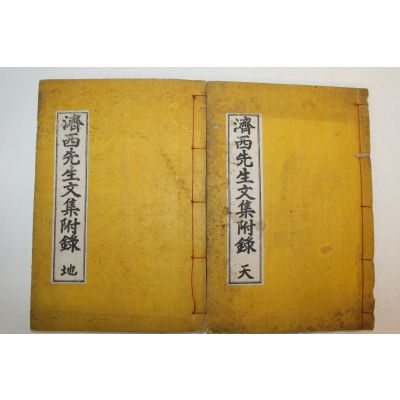 濟西先生文集附錄 地
濟西先生文集附錄 天